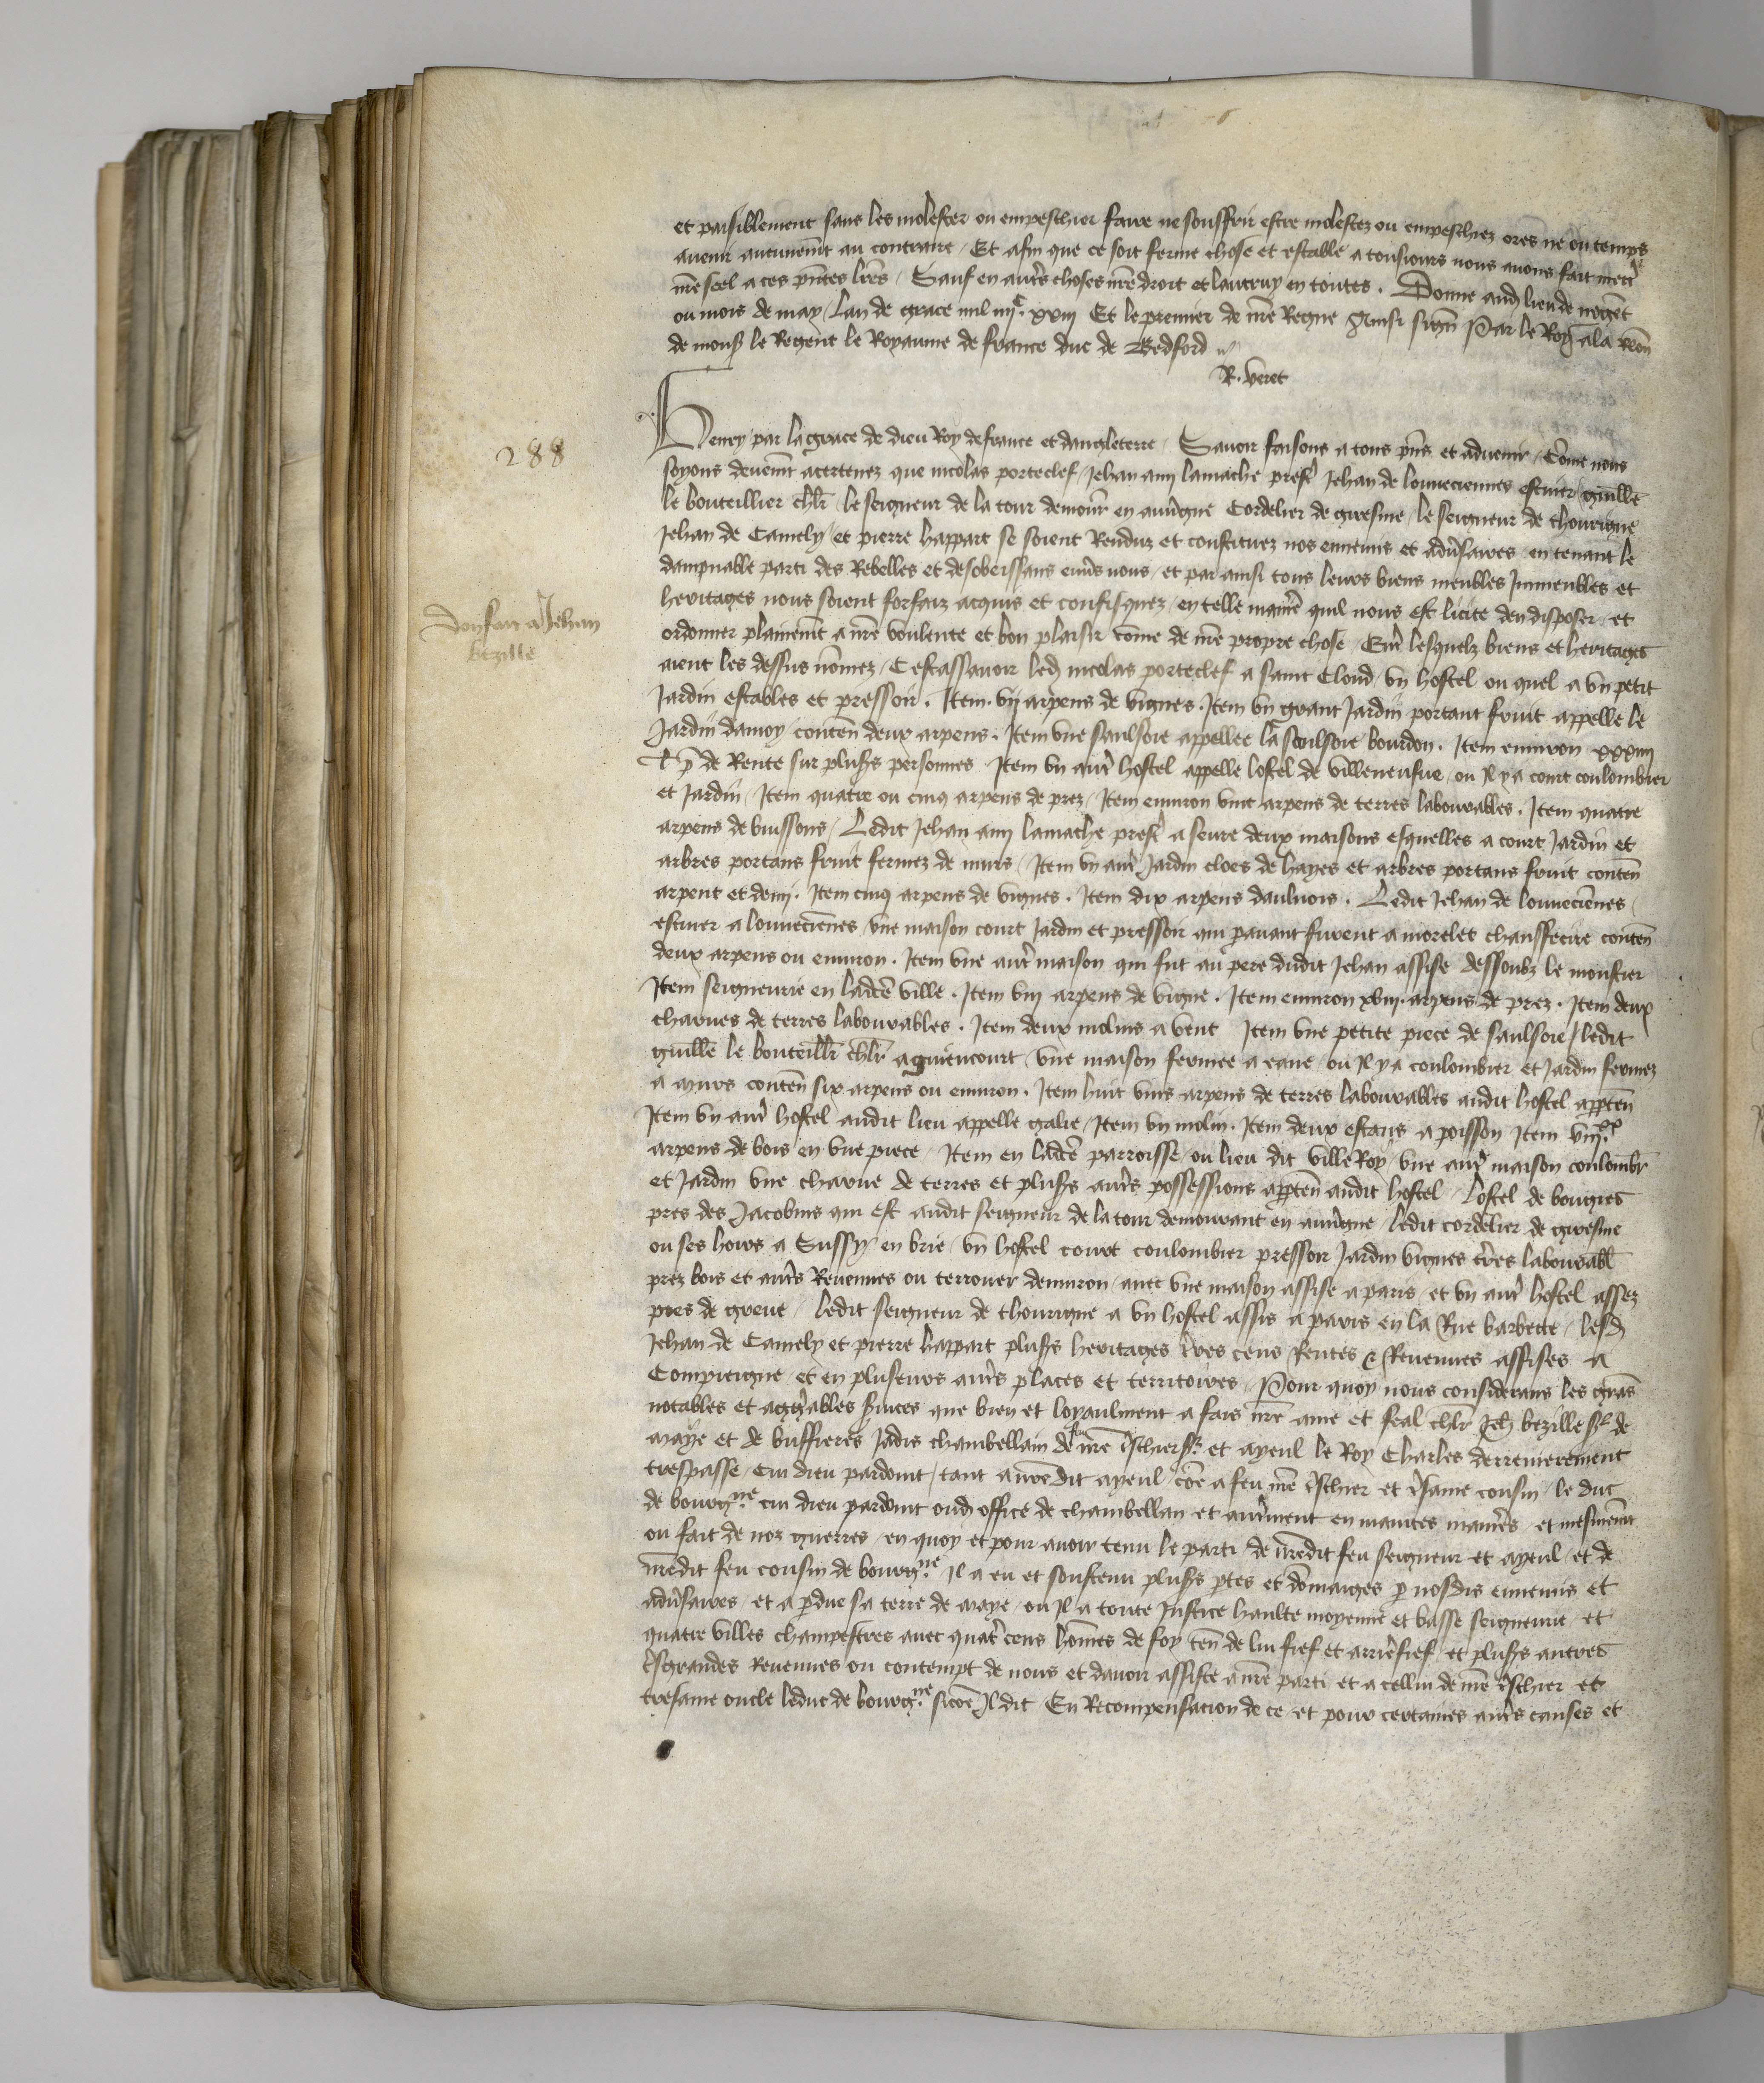 et paisiblement sans les molester ou empeschier faire ne souffrir estre molestez ou empeschiez ores ne ou temps
avenir aucunem̄t au contraire / Et afin que ce soit ferme chose et estable a tousiours nous auons fait mettr̄
nr̄e seel a ces pn̄tes lr̄es / Sauf en autr̄s choses nr̄e droit et lautruy en toutes . Donne aud lieu de
ou mois de may / Lan de grace mil iiijc. xxiij Et le premier de nr̄e Regne Ainsi sign̄ Par le Roy a la relon̄
de mons̄ le Regent le Royaume de france duc de Bedford
R. Veret
288
Henry par la grace de dieu Roy de france et dangleterre / Sauoir faisons a tous pn̄s et aduenir / Cōme nous
soyons deuem̄t acertenez que nicolas porteclef / Jehan lamache prest̄ Jehan de louueciennes escuier / guille
le bouteillier chlr̄ / le seigneur de la tour demour̄ en auuergne Cordelier de giresme / le seigneur de thourigne
Jehan de Camely / et pierre happart se soient Renduz et constituez nos ennemis et adūsaires / en tenant le
dampnable parti des Rebelles et desobeissans enūs nous / et par ainsi tous leurs biens meubles Immeubles et
heritages nous soient forfaiz acquis et confisquez / en telle manier̄e quil nous est licite den disposer / et
Don fait a Jehan
bezille
ordonner plainem̄t a nr̄e voulente et bon plaisir cōme de nr̄e propre chose / Entr̄ lesquelz biens et heritages
aient les dessus nōmez / Cestassauoir led nicolas porteclef a saint Cloud / vn hostel ou quel a vn petit
Jardin estables et pressoir . Item . vij arpens de vignes . Item vn grant Jardin portant fruit appelle le
Jardin damoy / conten̄ deux arpens . Item vne saulsoie appellee la saulsoie bourdon . Item enuiron xxxiiij
l p̄ de Rente sur plus̄s personnes Item vn autr̄ hostel appelle lostel de villeneufue / ou Il y a court coulombier
et Jardin / Item quatre ou cinq arpens de prez / Item enuiron vint arpens de terres labourables . Item quatre
arpens de buissons / Ledit Jehan lamache prest̄ a seure deux maisons esquelles a court Jardin et
arbres portans fruit fermez de murs / Item vn autr̄ Jardin cloes de hayes et arbres portans fruit conten̄
arpent et demj . Item cinq arpens de vignes . Item dix arpens daulnois . Ledit Jehan de louueciēnes /
escuier a louueciēnes / vne maison court Jardin et pressoir qui pauant furent a morelet chauffecire conten̄
deux arpens ou enuiron . Item vne autr̄ maison qui fut au pere dudit Jehan assise dessoubz le moustier
Item seigneurie en ladcē ville . Item viij arpens de vigne . Item enuiron xviij . arpens de prez . Item deux
charues de terres labourables . Item deux molins a vent Item vne petite piece de saulsoie / ledit
guille le bouteillr̄ chlr̄ a guiencourt / vne maison fermee a eaue / ou Il y a coulombier et Jardin fermez
a murs conten̄ six arpens ou enuiron . Item huit vins arpens de terres labourables audit hostel apparten̄
Item vn autr̄ hostel audit lieu appelle galie / Item vn molin . Item deux estans a poisson Item viijxx
arpens de bois en vne piece / Item en ladcē parroisse / ou lieu dit ville Roy / vne autr̄ maison coulombr̄
et Jardin vne charue de terres et plus̄s autr̄s possessions apparten̄ audit hostel / Lostel de bougies
pres des Jacobins qui est audit seigneur de la tour demourant en auuergne / ledit cordelier de giresme
ou ses hoirs a Sussy en brie / vn hostel court coulombier pressoir Jardin vignes tr̄es labourabl̄
prez bois et autr̄s Reuenues ou terrouer denuiron / auec vne maison assise a paris / et vn autr̄ hostel assez
pres de greue / ledit seigneur de thourigne a vn hostel assis a paris en la Rue barbette / lesd
Jehan de Camely et pierre happart plus̄s heritages tr̄res cens Rentes & Reuenues assises a
Compieigne / et en pluseurs autr̄s places et territoires / Pour quoy nous considerans les grās
notables et aggreables ser̄uices que bien et loyaulment a fais nr̄e ame et feal chlr̄ Jeh bezille sr de
maye et de buffieres Jadis chambellain de feu nr̄e tr̄schier sr et ayeul le Roy Charles derrenierement
trespasse / cui dieu pardoint / tant a nr̄edit ayeul / cōe a feu nr̄e tr̄schier et tr̄same cousin / le duc
de bourgne cui dieu pardoint oud office de chambellan et autr̄ment en maintes manier̄es / et mesmem̄t
ou fait de noz guerres / en quoy et pour auoir tenu le parti de nr̄edit feu seigneur et ayeul / et de
nr̄edit feu cousin de bourgne Il a eu et soustenu plus̄s ptes et dōmaiges p nosdis ennemis et
adūsaires / et a pdue sa terre de maye / ou Il a toute Justice haulte moyenne et basse seigneurie et
quatre villes champestres auec quatr̄ cens hōmes de foy ten̄ de lui fief et arrier̄efief / et plus̄s autres
tr̄sgrandes Reuenues ou contempt de nous et dauoir assiste a nr̄e parti et a cellui de nr̄e tr̄schier et
tresame oncle le duc de bourgne sicōe Il dit En Recompensacion de ce / et pour certaines autr̄s causes et